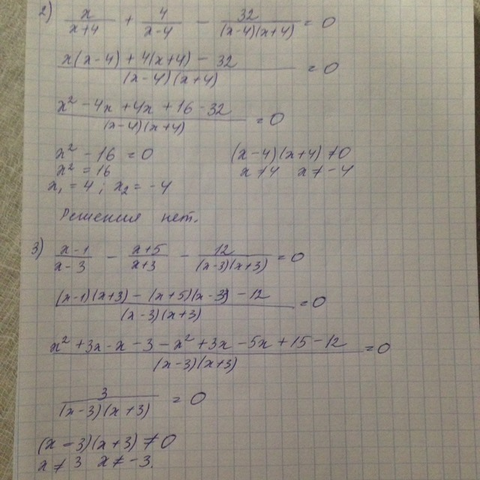 2) x/(x+4) + 4/(x-4) - 32/((x-4)(x+4)) = 0
(x(x-4) + 4(x+4) - 32)/((x-4)(x+4)) = 0
(x² - 4x + 4x + 16 - 32)/((x-4)(x+4)) = 0
x² - 16 = 0 (x-4)(x+4) ≠ 0
x² = 16 x ≠ 4 x ≠ -4
x₁ = 4 ; x₂ = -4
Решения нет.
3) (x-1)/(x-3) - (x+5)/(x+3) - 12/((x-3)(x+3)) = 0
((x-1)(x+3) - (x+5)(x-3) - 12)/((x-3)(x+3)) = 0
(x² + 3x - x - 3 - x² + 3x - 5x + 15 - 12)/((x-3)(x+3)) = 0
3/((x-3)(x+3)) = 0
(x-3)(x+3) ≠ 0
x ≠ 3 x ≠ -3.